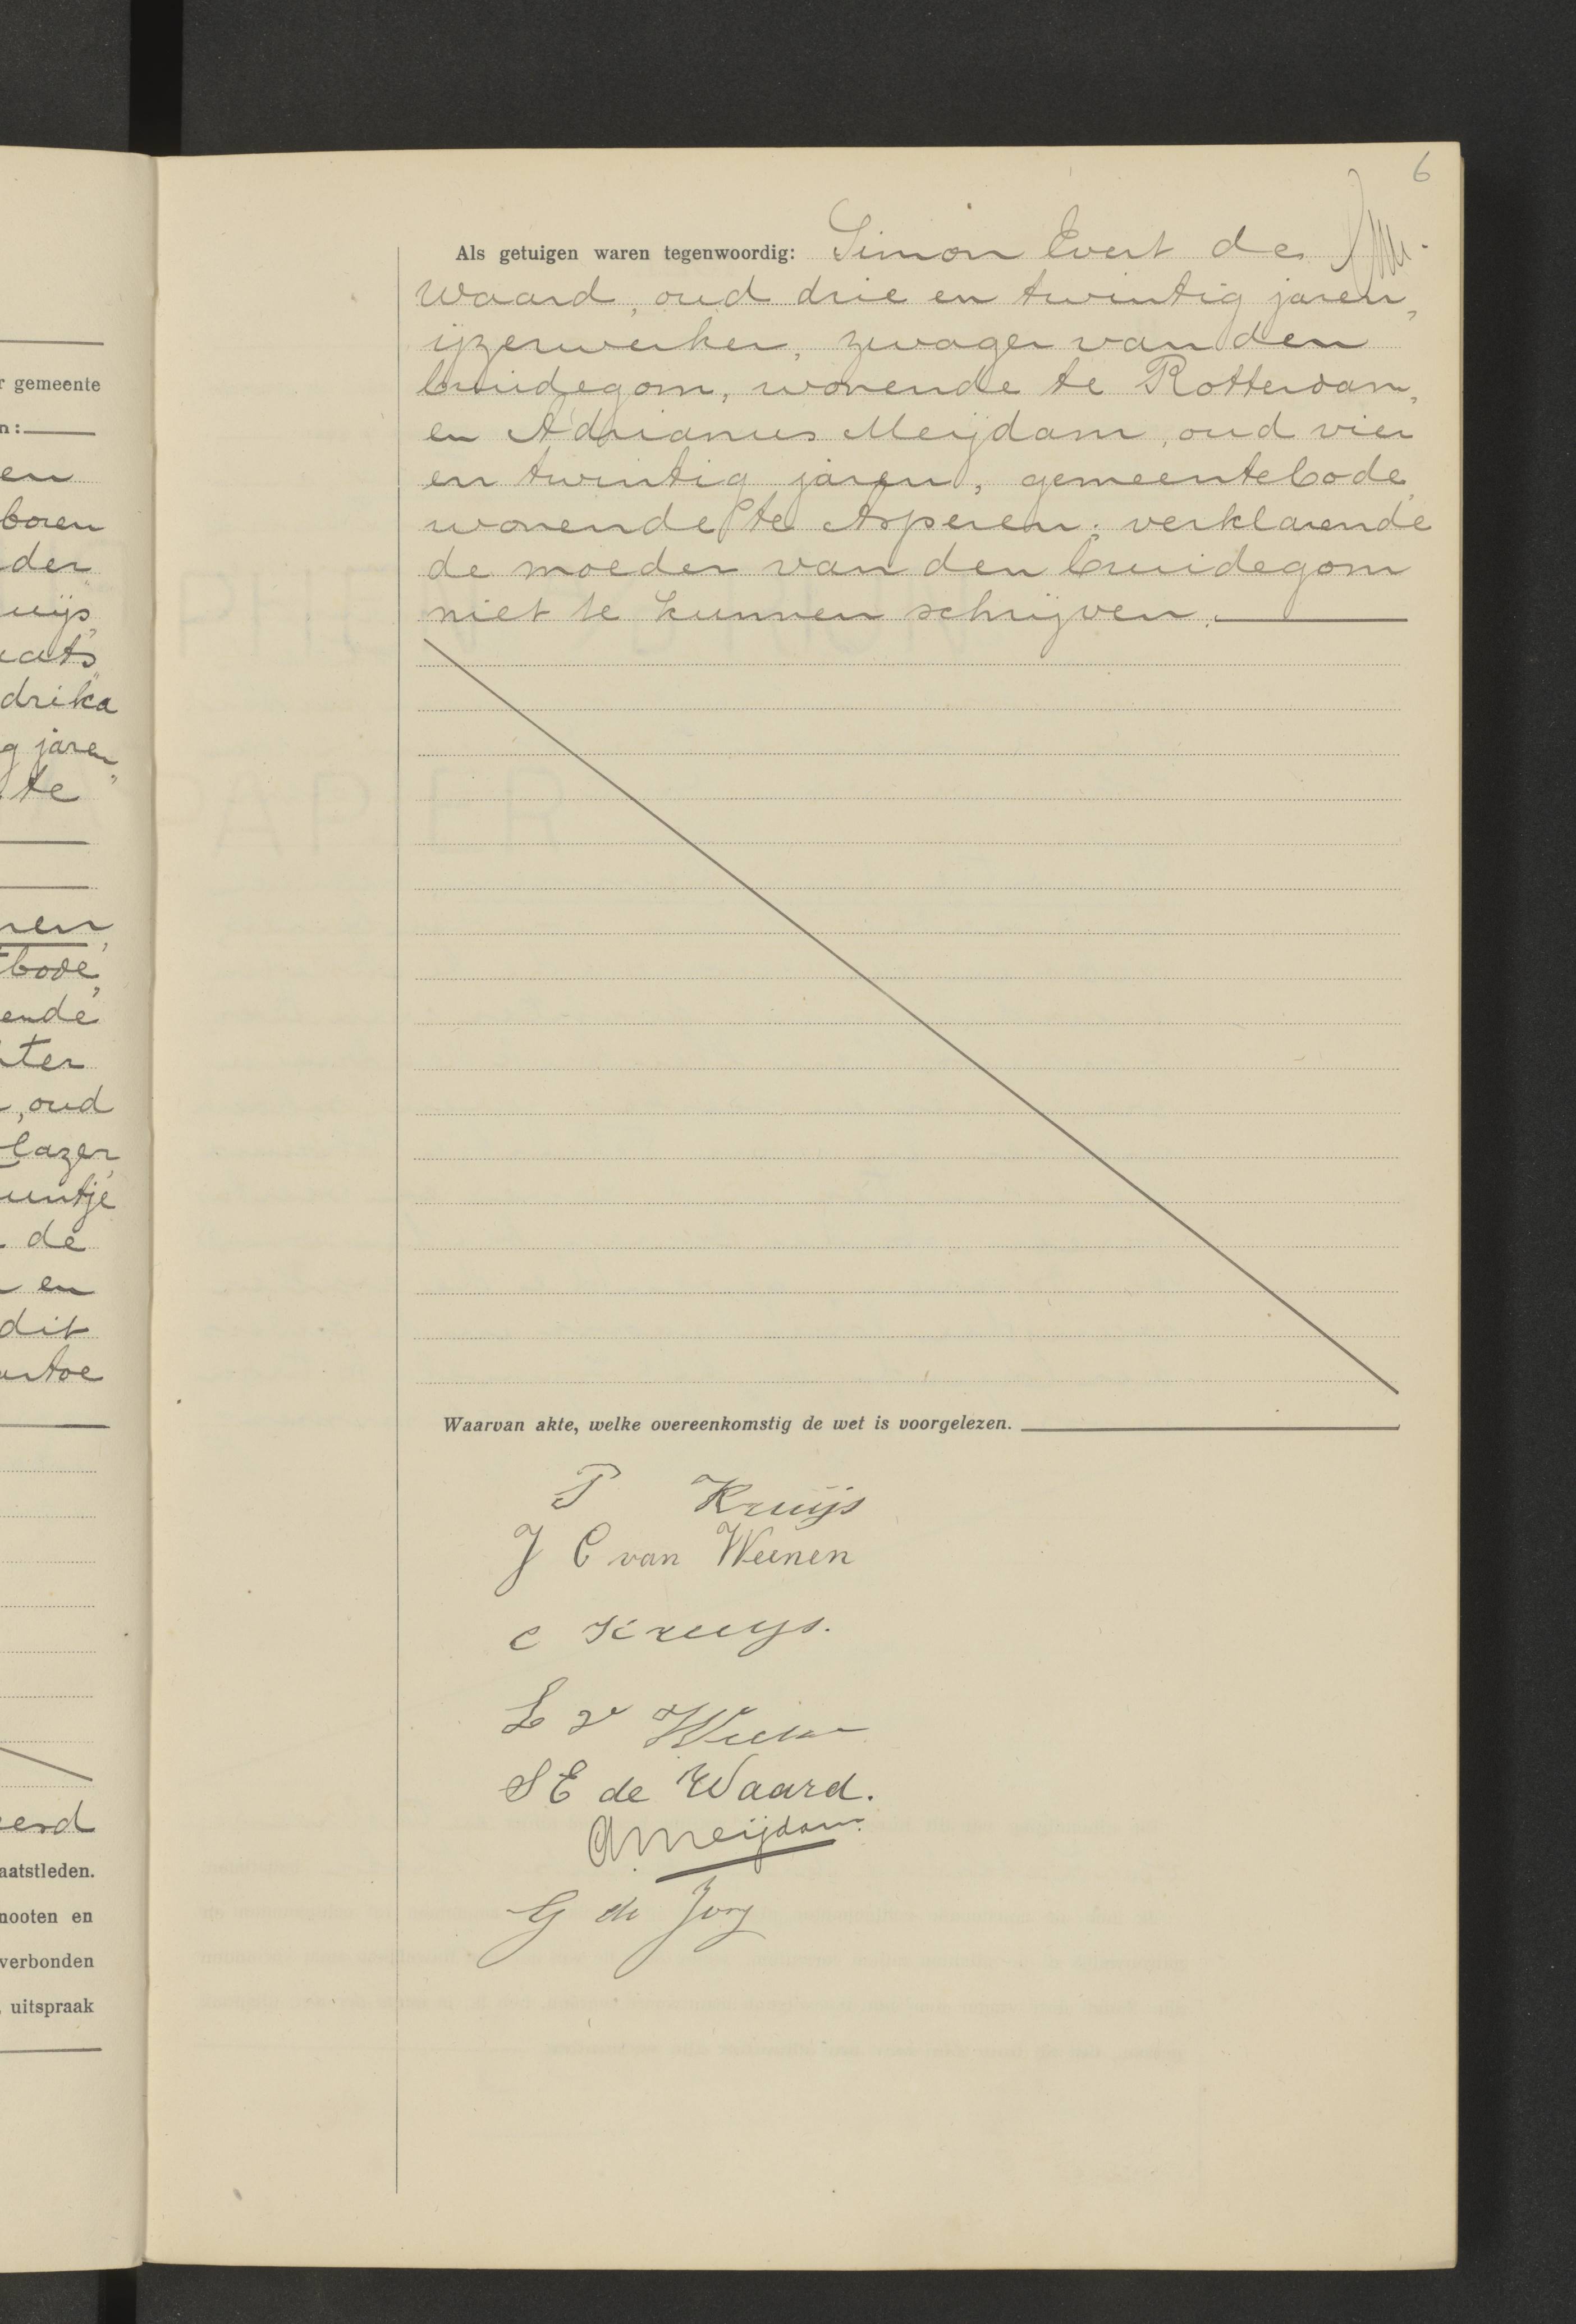 r gemeente
n:
en
boren
der
uijs,
aats
drika
g jaren,
te
nen,
bode,
ende
hter
, oud
lazer,
untje
de
en
dit
artoe
eerd
aatstleden.
nooten en
verbonden
, uitspraak
6
Als getuigen waren tegenwoordig: Simon Evert de
Waard, oud drie en twintig jaren,
ijzerwerker, zwager van den
bruidegom, wonende te Rotterdam,
en Adrianus Meijdam, oud vier
en twintig jaren, gemeentebode,
wonende te Asperen; verklarende
de moeder van den bruidegom
niet te kunnen schrijven.
Waarvan akte, welke overeenkomstig de wet is voorgelezen.
P Kruijs
J C van Weenen
C Kruys.
L v
S E de Waard.
A Meijdam.
G de Jong